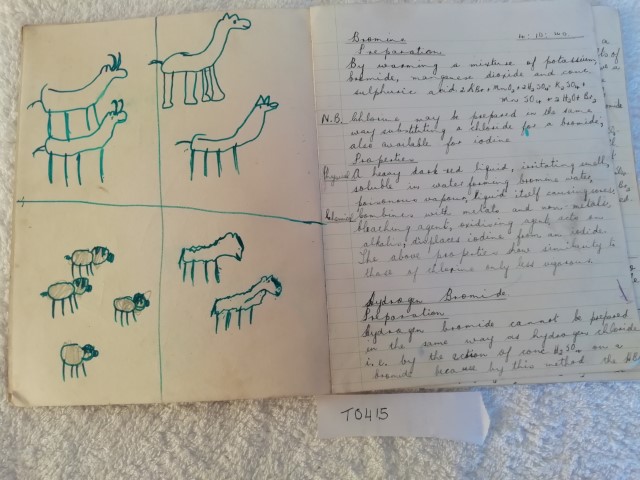 Bromine 4: 10: 40.
Preparation
By warming a mixture of potassium
bromide, manganese dioxide and conc
sulphuric acid 2KBr + MnO2 + 2H2SO4 K2SO4 +
Mn SO4 + 2H2O + Br2
N.B. Chlorine may be prepared in the same
way substituting a chloride for a bromide,
also available for iodine
Properties
Physical A heavy dark red liquid, irritating smell,
soluble in water forming bromine water,
poisonous vapour, liquid itself causing
Chemical Combines with metals and non metals,
bleaching agent, oxidising agent, acts on
alkalis, displaces iodine from an iodide
The above properties show similarity to
those of chlorine only less vigorous
Hydrogen Bromide.
Preparation
Hydrogen bromide cannot be prepared
in the same way as hydrogen chloride
i.e. by the action of conc H2SO4 on a
bromide because by this method the HBr
T0415